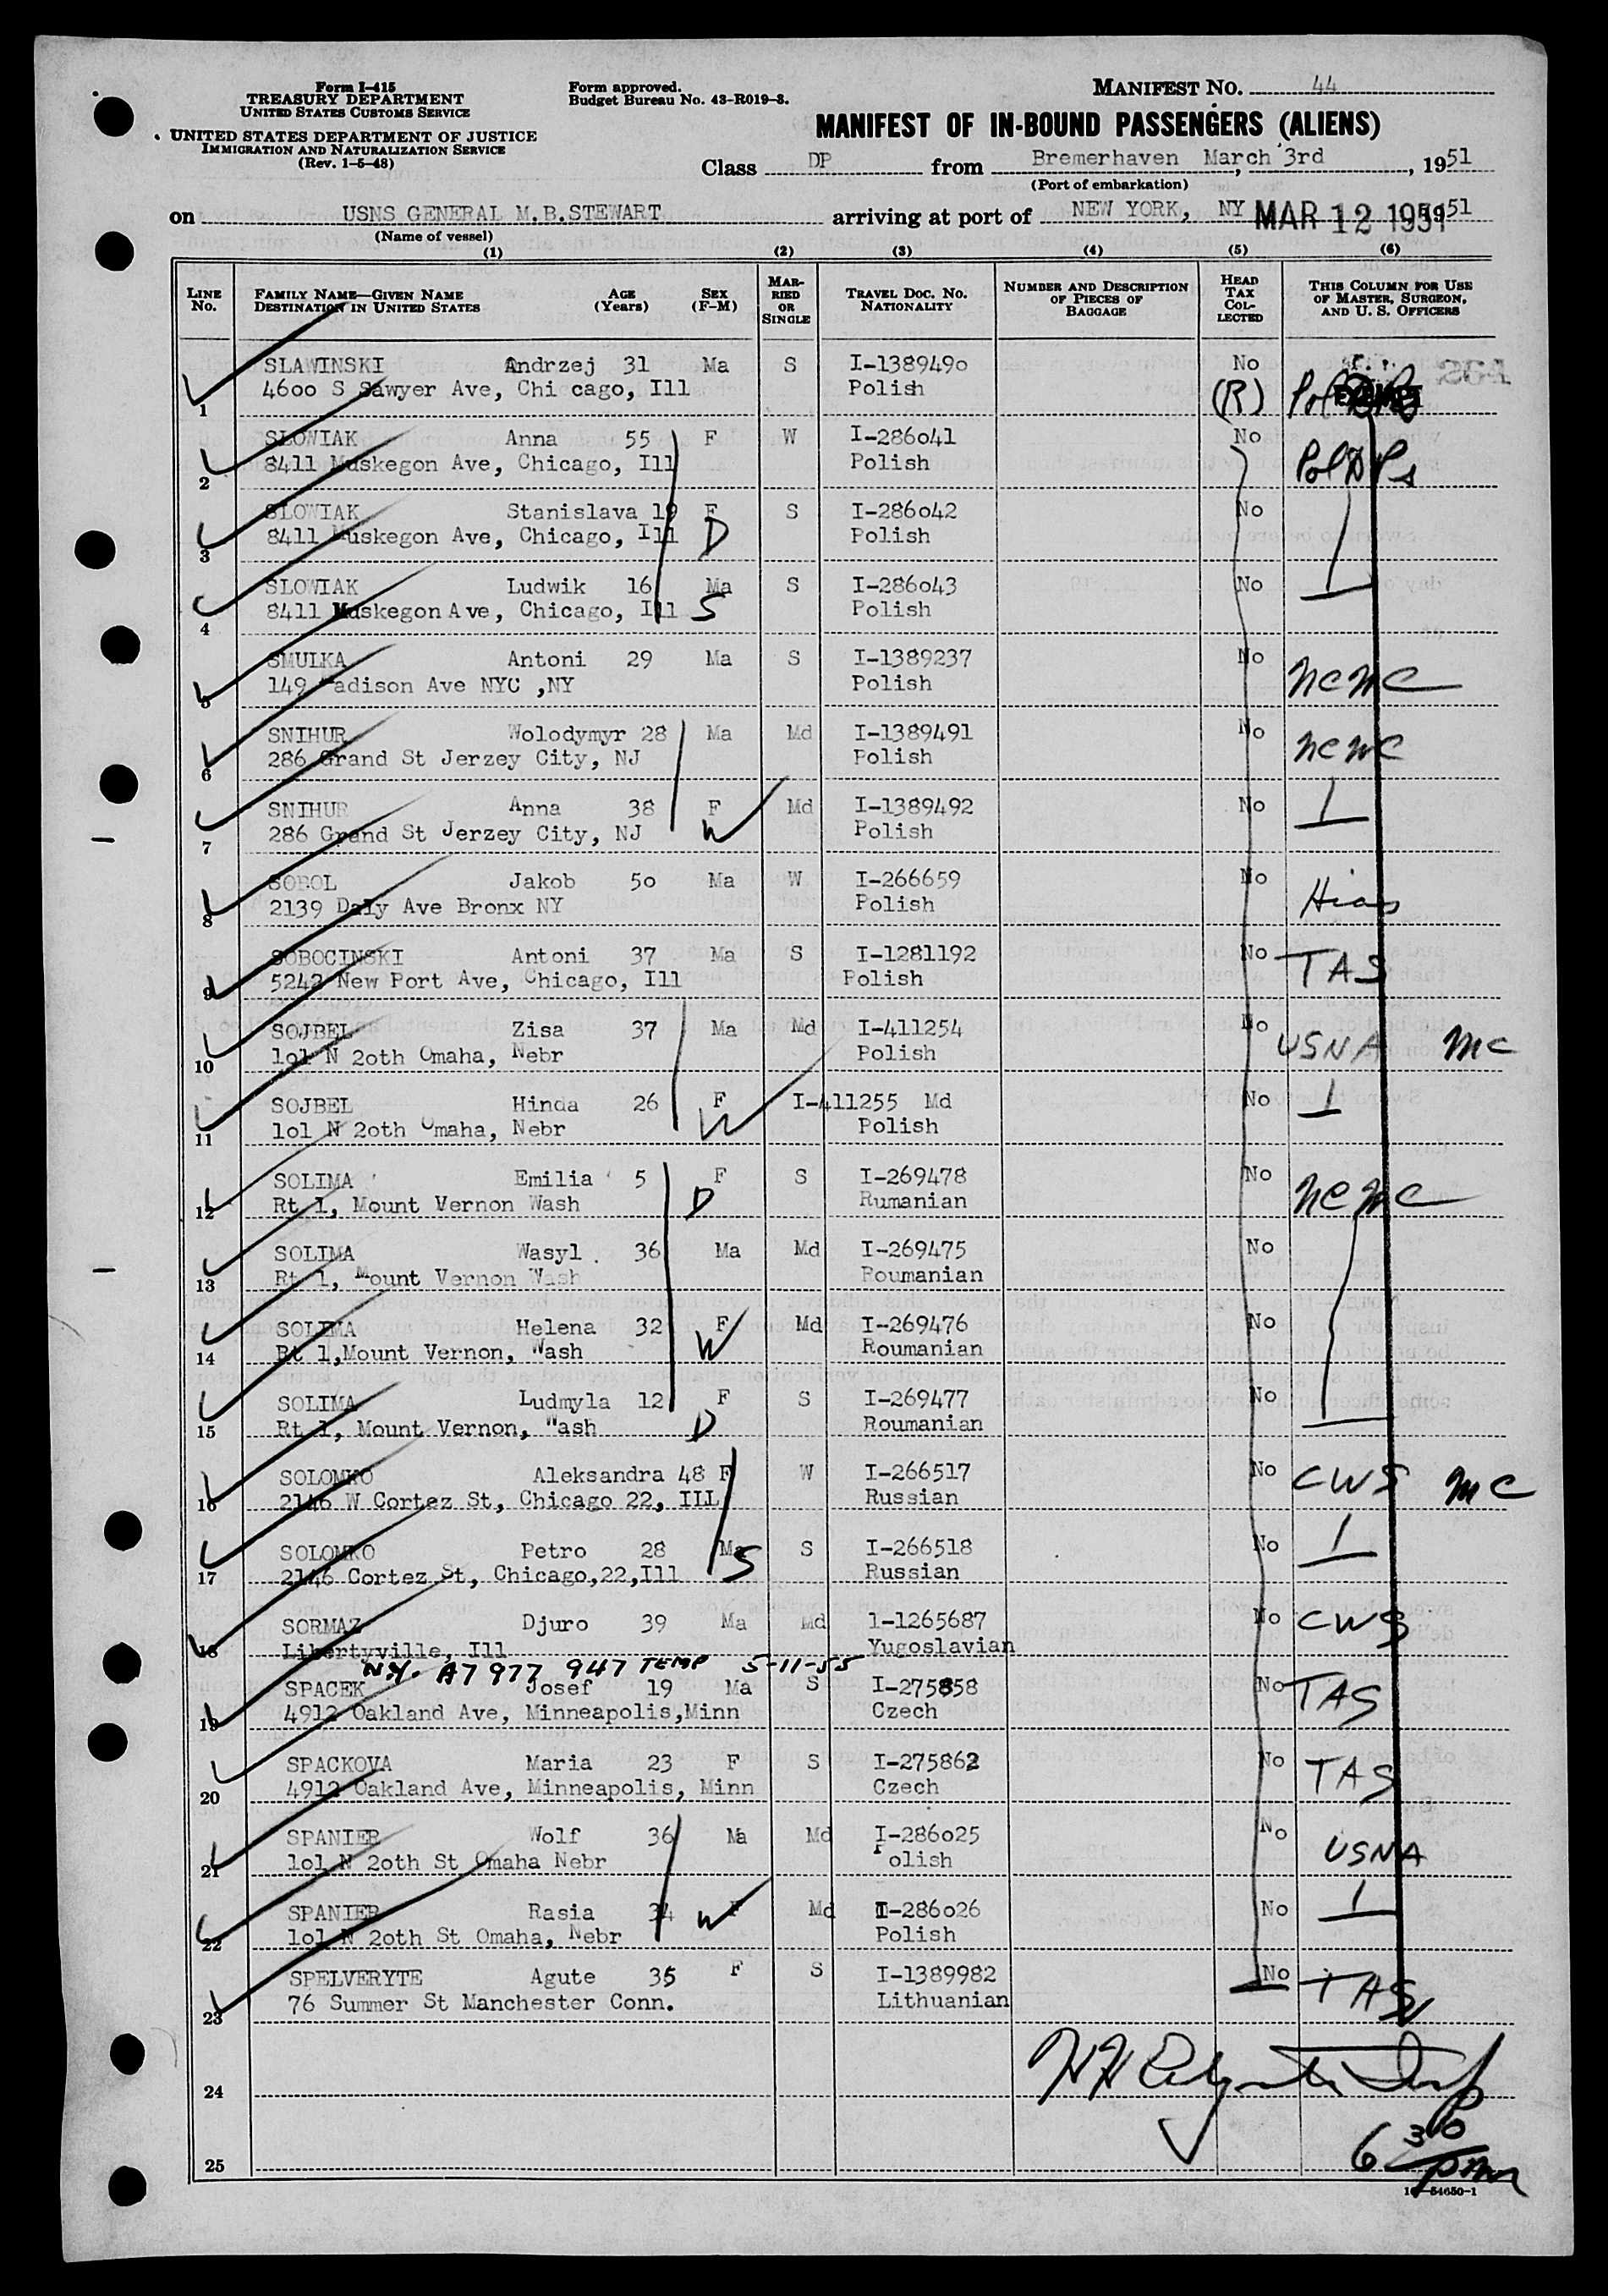 Form I-415
TREASURY DEPARTMENT
UNITED STATES CUSTOMS SERVICE
UNITED STATES DEPARTMENT OF JUSTICE
IMMIGRATION AND NATURALIZATION SERVICE
(Rev. 1-5-48)
Form approved.
Budget Bureau No. 43-R019-3.
MANIFEST NO. 44
MANIFEST OF IN-BOUND PASSENGERS (ALIENS)
Class DP from Bremerhaven March 3rd, 1951
(Port of embarkation)
on USNS GENERAL M.B.STEWART arriving at port of NEW YORK, NY MAR 12 1951 1951
(Name of vessel)
(1) (2) (3) (4) (5) (6)
LINE NO. FAMILY NAME—GIVEN NAME DESTINATION IN UNITED STATES AGE (Years) SEX (F-M) MARRIED OR SINGLE TRAVEL DOC. NO. NATIONALITY NUMBER AND DESCRIPTION OF PIECES OF BAGGAGE HEAD TAX COLLECTED THIS COLUMN FOR USE OF MASTER, SURGEON, AND U. S. OFFICERS
SLAWINSKI Andrzej 31 Ma S I-1389490 No
1 4600 S Sawyer Ave, Chi cago, Ill Polish (R) Pol
SLOWIAK Anna 55 F W I-286041 No
2 8411 Muskegon Ave, Chicago, Ill Polish Pol DPs
SLOWIAK Stanislava 19 F S I-286042 No
3 8411 Muskegon Ave, Chicago, Ill D Polish
SLOWIAK Ludwik 16 Ma S I-286043 No
4 8411 Muskegon Ave, Chicago, Ill S Polish
SMULKA Antoni 29 Ma S I-1389237 No
5 149 Madison Ave NYC ,NY Polish NCWC
SNIHUR Wolodymyr 28 Ma Md I-1389491 No
6 286 Grand St Jerzey City, NJ Polish NCWC
SNIHUR Anna 38 F Md I-1389492 No
7 286 Grand St Jerzey City, NJ W Polish
SOBOL Jakob 50 Ma W I-266659 No
8 2139 Daly Ave Bronx NY Polish Hias
SOBOCINSKI Antoni 37 Ma S I-1281192 No
9 5242 New Port Ave, Chicago, Ill Polish TAS
SOJBEL Zisa 37 Ma Md I-411254 No
10 lol N 2oth Omaha, Nebr Polish USNA MC
SOJBEL Hinda 26 F I-411255 Md No
11 lol N 2oth Omaha, Nebr W Polish
SOLIMA Emilia 5 F S I-269478 No
12 Rt 1, Mount Vernon Wash D Rumanian NCWC
SOLIMA Wasyl 36 Ma Md I-269475 No
13 Rt 1, Mount Vernon Wash Roumanian
SOLIMA Helena 32 F Md I-269476 No
14 Rt 1,Mount Vernon, Wash W Roumanian
SOLIMA Ludmyla 12 F S I-269477 No
15 Rt 1, Mount Vernon, Wash D Roumanian
SOLOMKO Aleksandra 48 F W I-266517 No
16 2146 W Cortez St, Chicago 22, ILL Russian CWS MC
SOLOMKO Petro 28 Ma S I-266518 No
17 2146 Cortez St, Chicago,22,Ill S Russian
SORMAZ Djuro 39 Ma Md 1-1265687 No CWS
18 Libertyville, Ill Yugoslavian
N.Y. A7 977 947 TEMP 5-11-55
SPACEK Josef 19 Ma S I-275858 No TAS
19 4912 Oakland Ave, Minneapolis,Minn Czech
SPACKOVA Maria 23 F S I-275862 No TAS
20 4912 Oakland Ave, Minneapolis, Minn Czech
SPANIER Wolf 36 Ma Md I-286025 No
21 lol N 2oth St Omaha Nebr Polish USNA
SPANIER Rasia 34 F W Md I-286026 No
22 lol N 2oth St Omaha, Nebr Polish
SPELVERYTE Agute 35 F S I-1389982 No
23 76 Summer St Manchester Conn. Lithuanian TAS
24
25
6 30 pm
16—54650-1